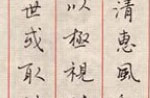 清惠風
以極視
世或取